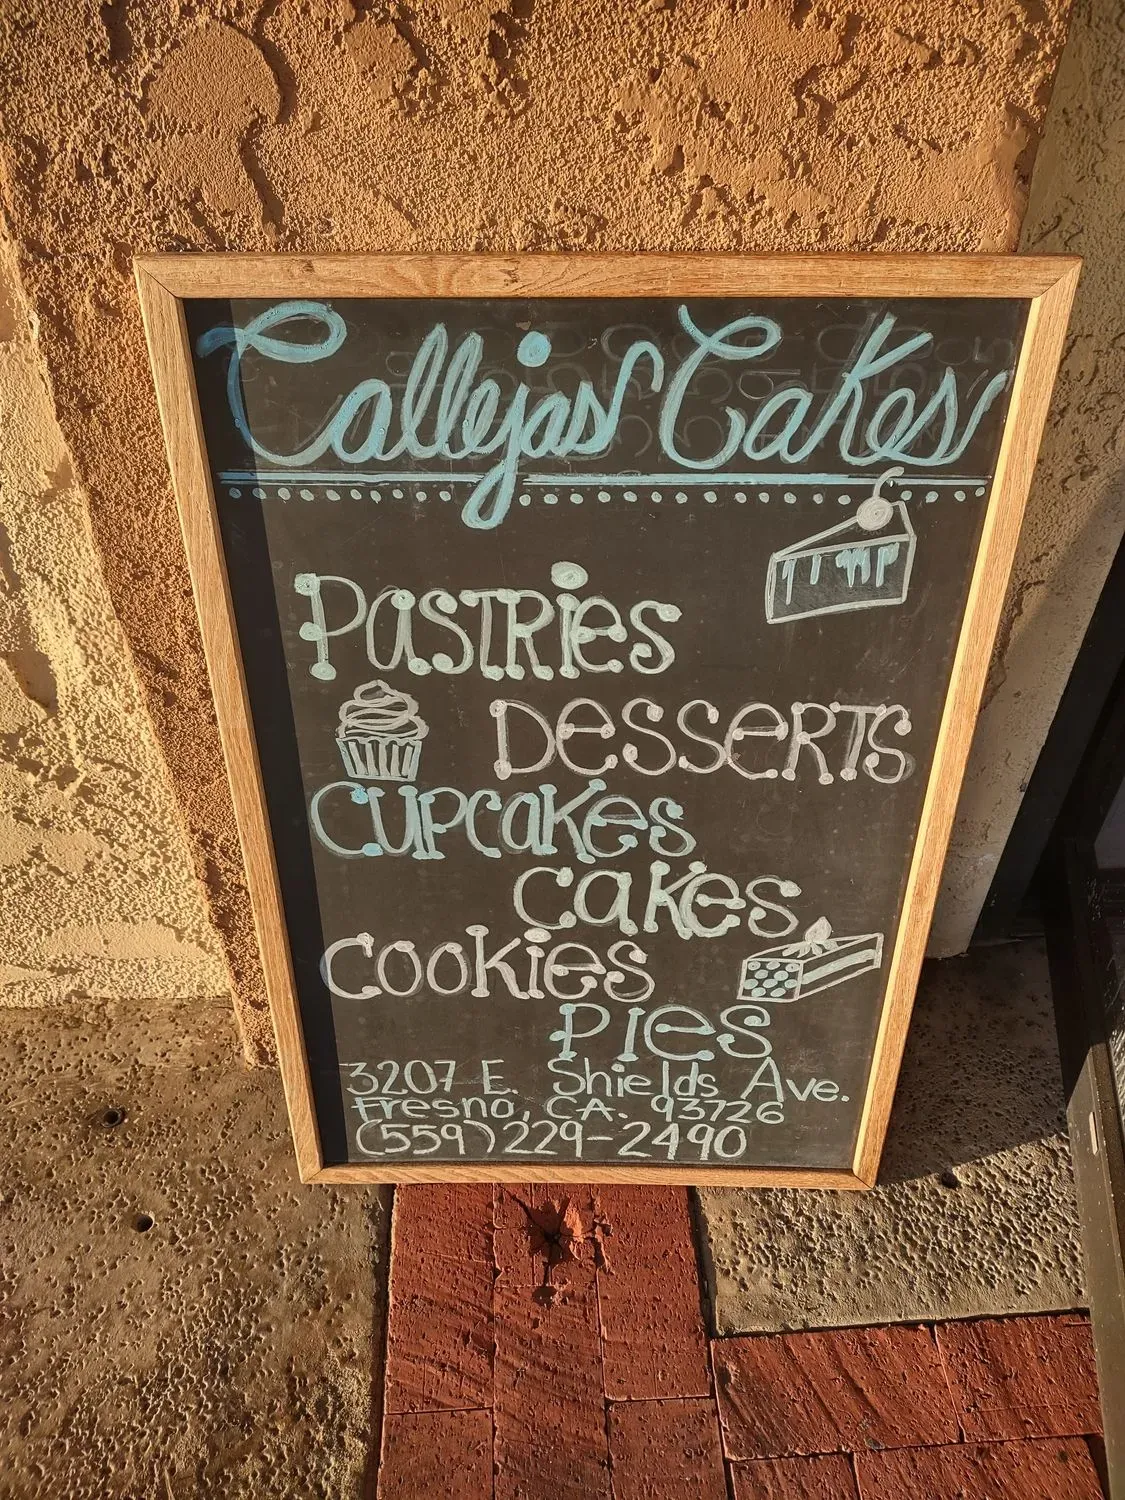 Callejas Cakes
PASTRies
DesseRTs
CUPCAKes
CAKes
COOKies
PIes
3207 E. Shields Ave.
Fresno, CA. 93726
(559)229-2490